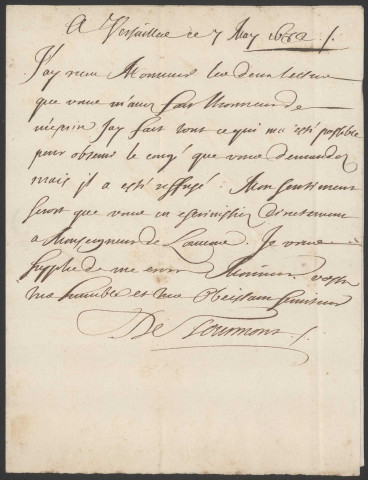 A Versailles ce 7 May 1682
J'ay receu Monsieur les deux lettres
que vous m'avez fait l'honneur de
m'escrire J'ay fait tout ce qui m'a esté possible
pour obtenir le congé que vous demandez
mais il a esté reffusé. Mon sentiment
seroit que vous en escrivissiez directement
a Monseigneur de Louvois. Je vous
supplie de me croire Monsieur vostre
tres humble et tres obeissant serviteur
De Tourmont